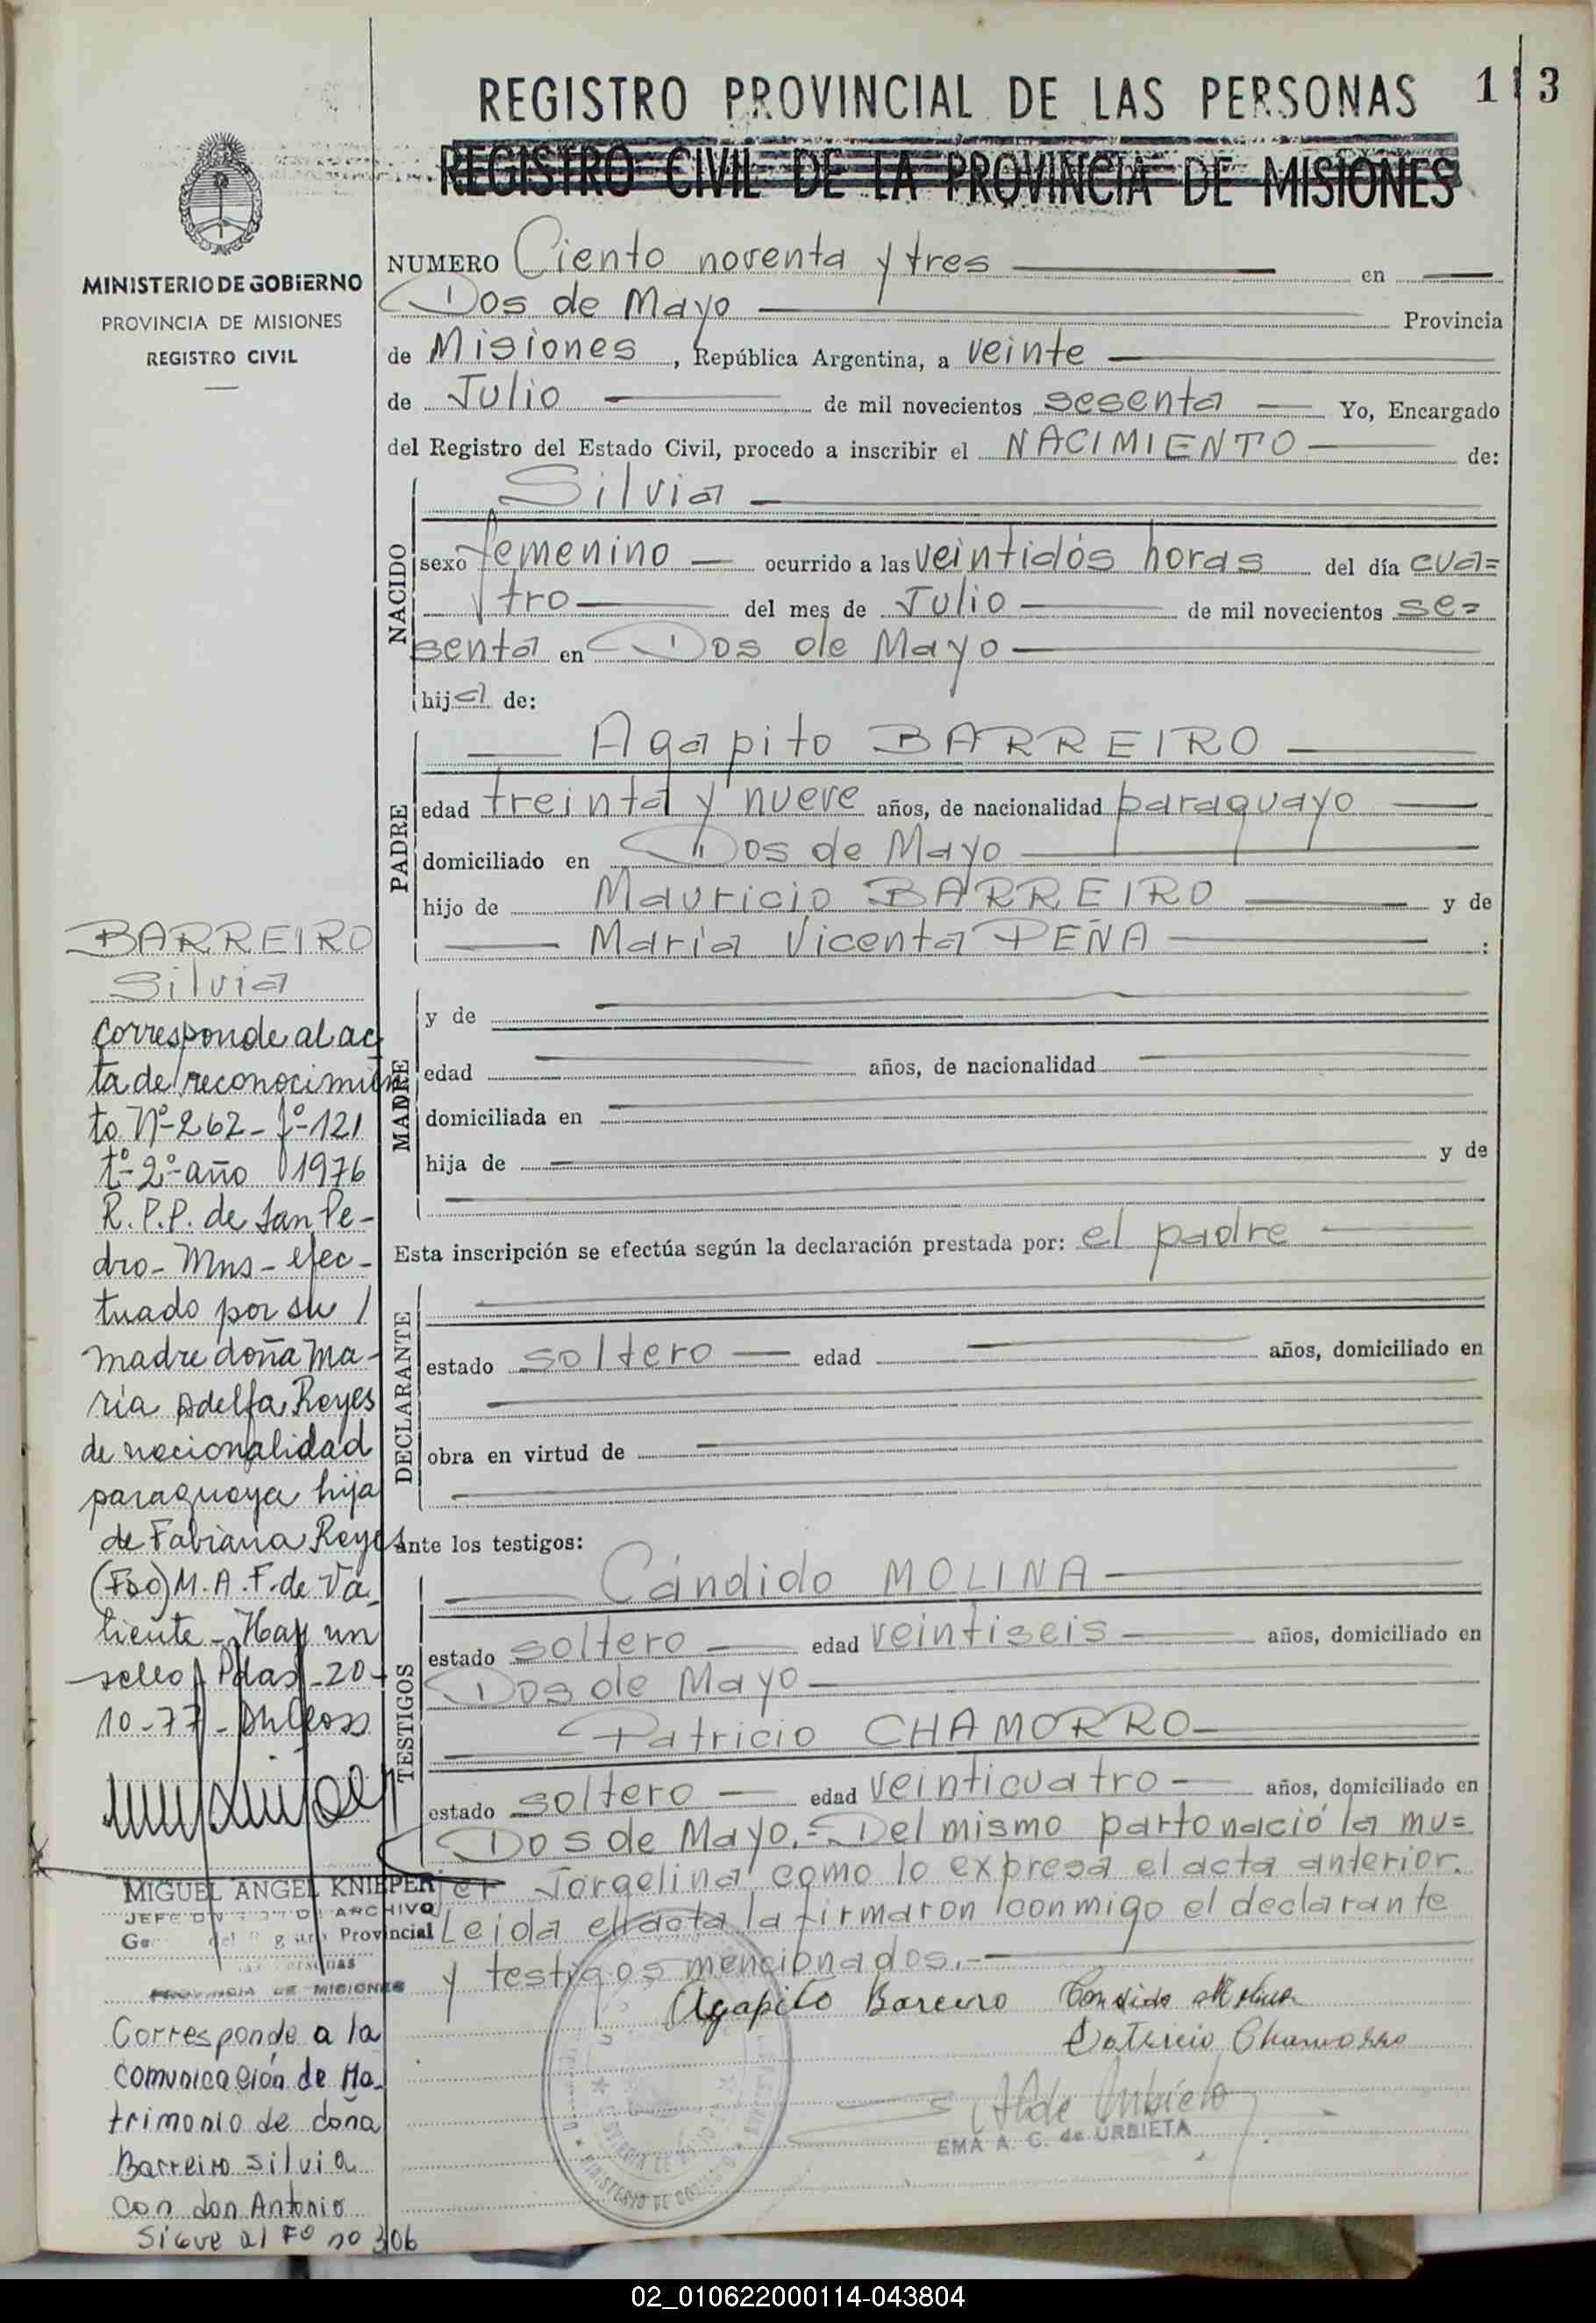 REGISTRO PROVINCIAL DE LAS PERSONAS 113
REGISTRO CIVIL DE LA PROVINCIA DE MISIONES
MINISTERIO DE GOBIERNO
PROVINCIA DE MISIONES
REGISTRO CIVIL
NUMERO Ciento noventa y tres en
Dos de Mayo Provincia
de Misiones, República Argentina, a veinte
de Julio de mil novecientos sesenta Yo, Encargado
del Registro del Estado Civil, procedo a inscribir el NACIMIENTO de:
NACIDO
Silvia
sexo femenino ocurrido a las veintidós horas del día cua=
tro del mes de Julio de mil novecientos se=
senta en Dos de Mayo
hija de:
PADRE
Agapito BARREIRO
edad treinta y nueve años, de nacionalidad paraguayo
domiciliado en Dos de Mayo
hijo de Mauricio BARREIRO y de
María Vicenta PEÑA :
MADRE
y de
edad años, de nacionalidad
domiciliada en
hija de y de
Esta inscripción se efectúa según la declaración prestada por: el padre
DECLARANTE
estado soltero edad años, domiciliado en
obra en virtud de
Ante los testigos:
TESTIGOS
Cándido MOLINA
estado soltero edad veintiseis años, domiciliado en
Dos de Mayo
Patricio CHAMORRO
estado soltero edad veinticuatro años, domiciliado en
Dos de Mayo.= Del mismo parto nació la mu=
jer Jorgelina como lo expresa el acta anterior.
Leida el acta la firmaron conmigo el declarante
y testigos mencionados.-
Agapito Bareiro Candido Molina
Patricio Chamorro
EMA A. C. de URBIETA
BARREIRO
Silvia
Corresponde al ac
ta de reconocimien
to Nº 262 - fº 121
tº 2º año 1976
R.P.P. de San Pe-
dro - Mns - efec-
tuado por su /
madre doña Ma-
ría Adelfa Reyes
de nacionalidad
paraguaya hija
de Fabiana Reyes
(Fdo) M. A. F. de Va
liente - Hay un
sello Pdas - 20-
10-77-
MIGUEL ANGEL KNIEPER
JEFE DIVISION DE ARCHIVO
Provincial
de las Personas
PROVINCIA DE MISIONES
Corresponde a la
comunicación de Ma-
trimonio de doña
Barreiro Silvia
con don Antonio
Sigue al Fº no 306
02_010622000114-043804